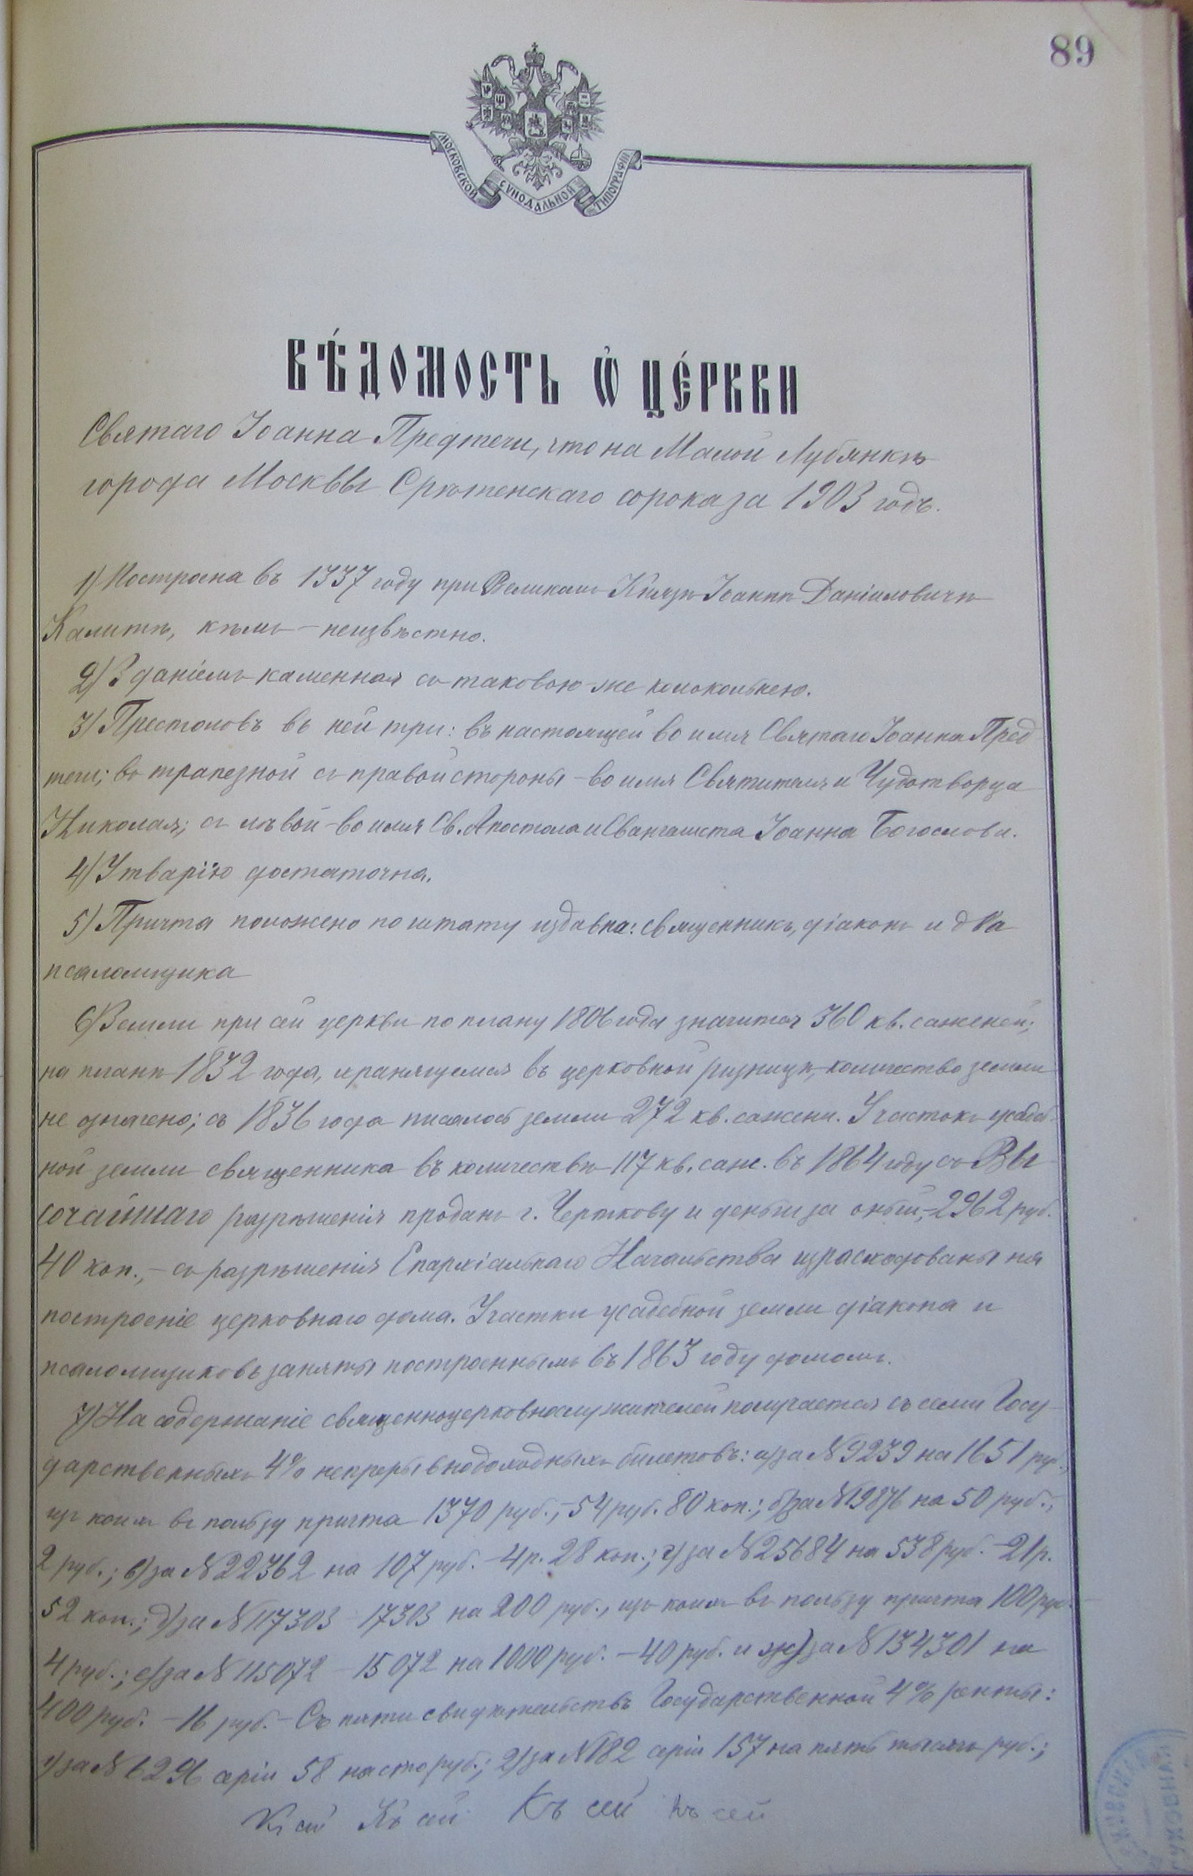 89
МОСКОВСКОЙ СѴНОДАЛЬНОЙ ТИПОГРАФІИ
ВѢ́ДОМОСТЬ Ѽ ЦЕ́РКВИ
Святаго Іоанна Предтечи, что на Малой Лубянкѣ
города Москвы Срѣтенскаго сорока за 1903 годъ.
1) Построена въ 1337 году при Великомъ Князѣ Іоаннѣ Даніиловичѣ
Калитѣ, кѣмъ – неизвѣстно.
2) Зданіемъ каменная съ таковою-же колокольнею.
3) Престоловъ въ ней три: въ настоящей во имя Святаго Іоанна Пред
течи; въ трапезной съ правой стороны – во имя Святителя и Чудотворца
Николая; съ лѣвой – во имя Св. Апостола и Евангелиста Іоанна Богослова.
4) Утварію достаточна.
5) Причта положено по штату издавна: священникъ, діаконъ и два
псаломщика
6) Земли при сей церкви по плану 1806 года значится 360 кв. саженей;
на планѣ 1832 года, хранящемся въ церковной ризницѣ, количество земли
не означено; съ 1836 года писалось земли 272 кв. сажени. Участокъ усадеб-
ной земли священника въ количествѣ 117 кв. саж. въ 1864 году съ Вы
сочайшаго разрѣшенія проданъ г. Черткову и деньги за оный, – 2962 руб.
40 коп., – съ разрѣшенія Епархіальнаго Начальства израсходованы на
построеніе церковнаго дома. Участки усадебной земли діакона и
псаломщиковъ заняты построеннымъ въ 1863 году домомъ.
7) На содержаніе священноцерковнослужителей получается съ семи Госу-
дарственныхъ 4% непрерывнодоходныхъ билетовъ: а) за № 9239 на 1651 руб.,
изъ коихъ въ пользу причта 1370 руб., – 54 руб. 80 коп.; б) за № 19876 на 50 руб. –
2 руб.; в) за № 22362 на 107 руб. – 4 р. 28 коп.; г) за № 25684 на 538 руб. – 21 р.
52 коп.; д) за № 117303 – 17303 на 200 руб., изъ коихъ въ пользу причта 100 руб. –
4 руб.; е) за № 115072 – 15072 на 1000 руб. – 40 руб. и ж) за № 134301 на
400 руб. – 16 руб. – Съ пяти свидѣтельствъ Государственной 4% ренты:
1) за № 6296 серіи 58 на сто руб.; 2) за № 182 серіи 157 на пять тысячъ руб.;
Къ сей Къ сей Къ сей Къ сей